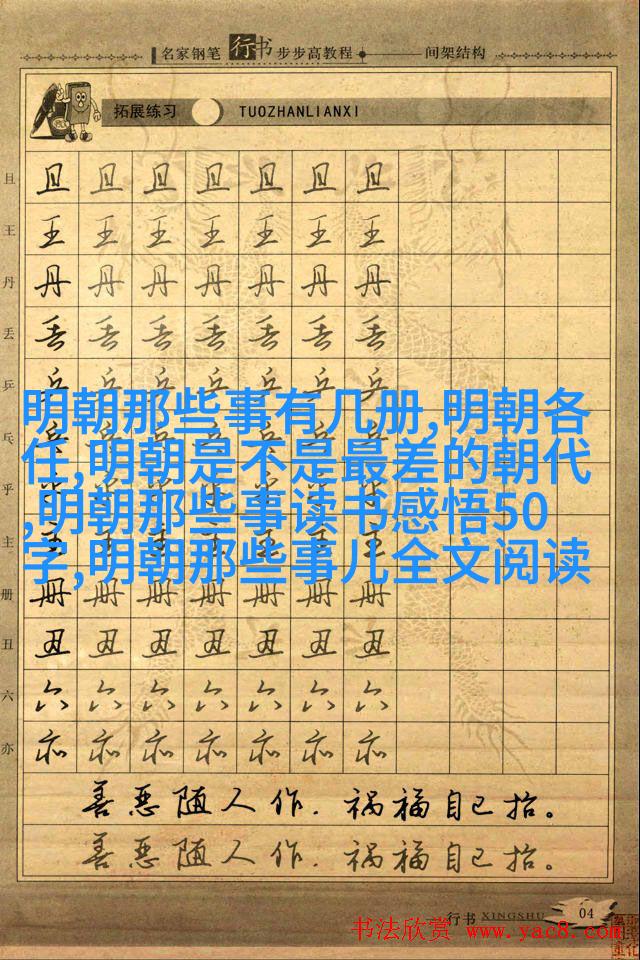 名家钢笔行书步步高教程 间架结构
拓展练习 TUOZHANLIANXI
且 且 且 且 且 且 且 且
王 王 王 王 王 王 王 王
丹 丹 丹 丹 丹 丹 丹 丹
丢 丢 丢 丢 丢 丢 丢 丢
乒 乒 乒 乒 乒 乒 乒 乒
明朝那些事有几册,明朝各
任,明朝是不是最差的朝代
,明朝那些事读书感悟50
字,明朝那些事儿全文阅读
乓 乓 乓 乓 乓 乓 乓 乓
乎 乎 乎 乎 乎 乎 乎 乎
主 主 主 主 主 主 主 主
册 册 册 册 册 册 册 册
丑 丑 丑 丑 丑 丑 丑 丑
六 六 六 六 六 六 六 六
亦 亦 亦 亦 亦 亦 亦 亦
善恶随人作，祸福自己招。
善恶随人作，祸福自己招。
行书 XINGSHU 04
书法欣赏 www.yac8.com